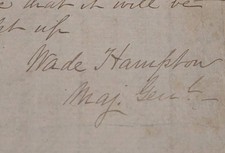 that it will be
up
Wade Hampton
Maj. Genl.